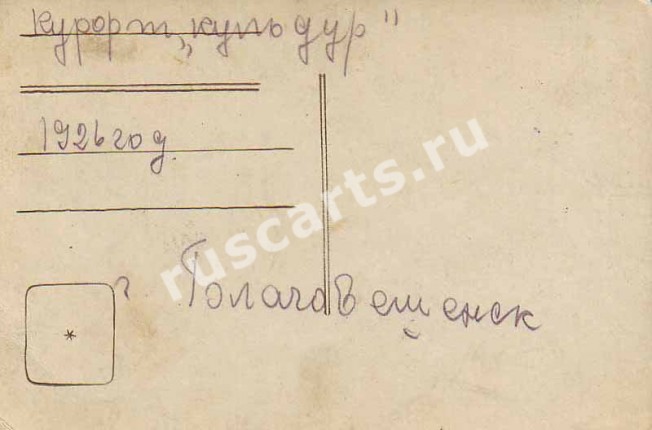 курорт „кульдур"
1926 год
г Благовещенск
ruscarts.ru